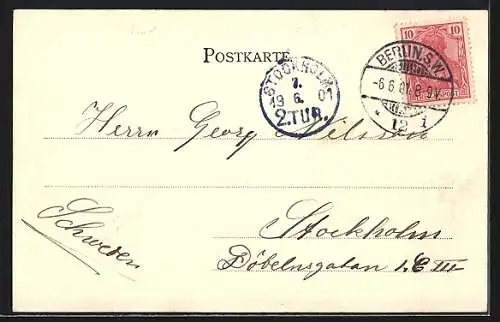 POSTKARTE
10 10
BERLIN.S.W.
-6.6.01.8-9V.
* 12 i
STOCKHOLM 1
7.
19 6. 01
2.TUR.
Herrn Georg Nilsson
Stockholm
Döbelnsgatan 1. C III
Schweden